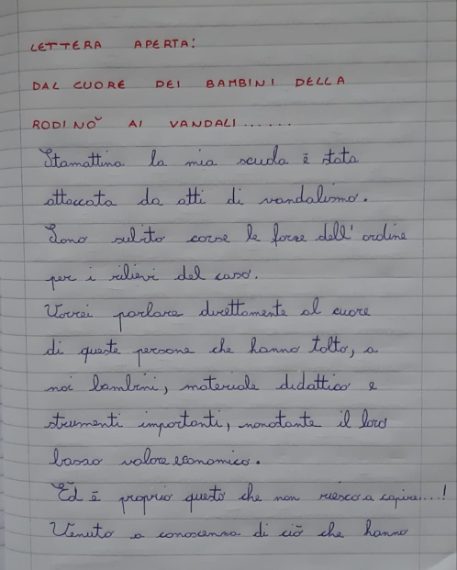 LETTERA APERTA:
DAL CUORE DEI BAMBINI DELLA
RODINO' AI VANDALI......
Stamattina la mia scuola è stata
attaccata da atti di vandalismo.
Sono subito corse le forze dell'ordine
per i rilievi del caso.
Vorrei parlare direttamente al cuore
di queste persone che hanno tolto, a
noi bambini, materiale didattico e
strumenti importanti, nonostante il loro
basso valore economico.
Ed è proprio questo che non riesco a capire...!
Venuto a conoscenza di ciò che hanno